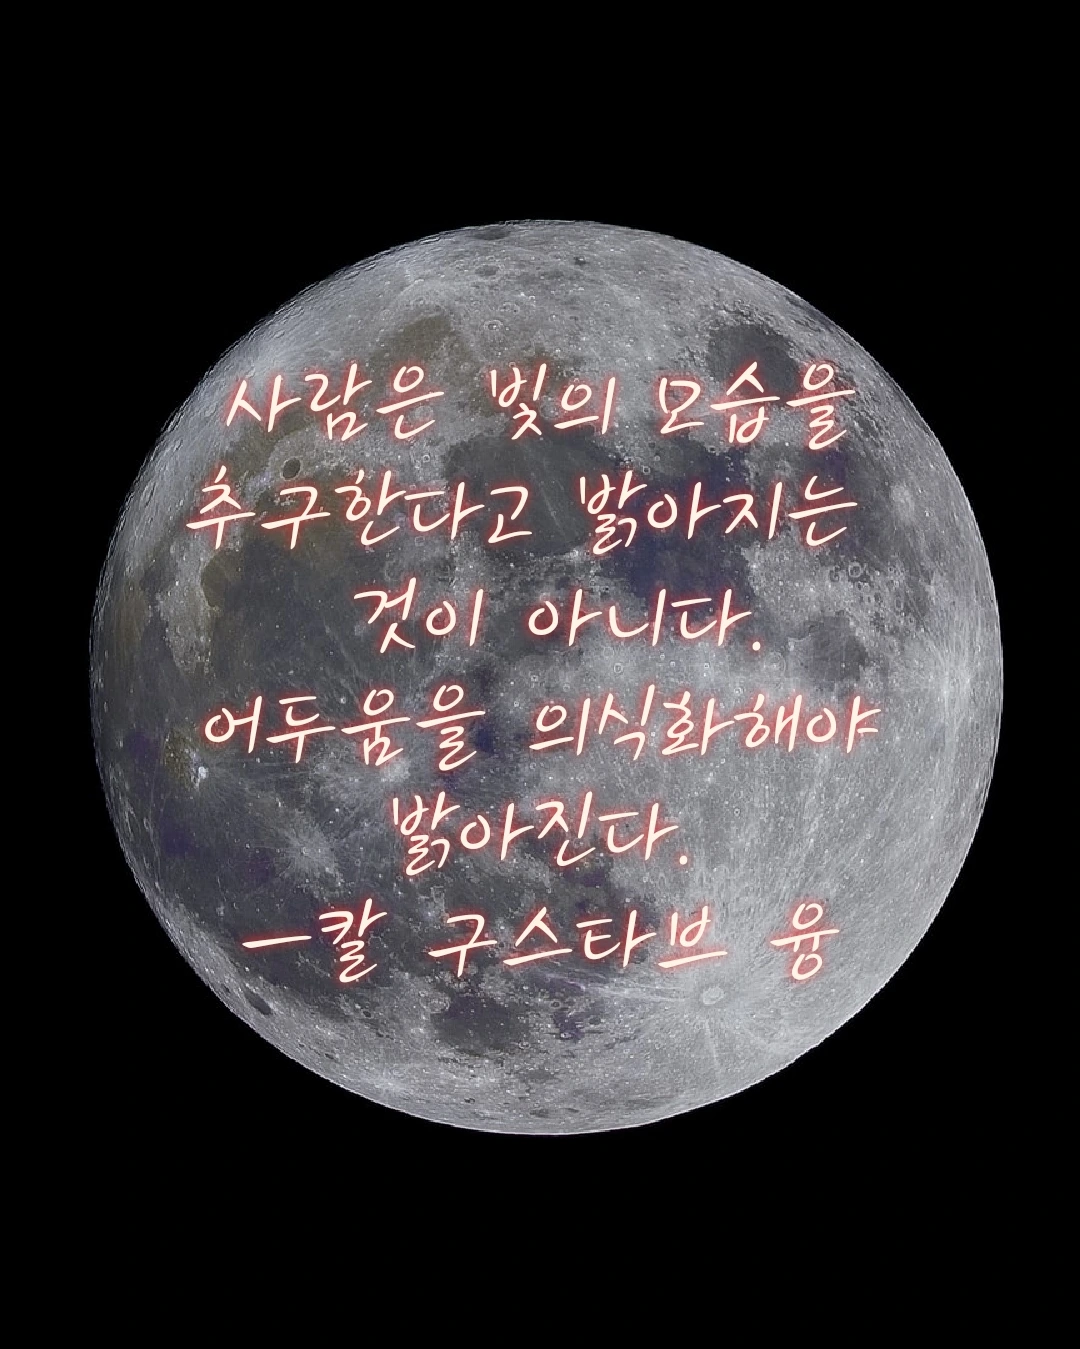 사람은 빛의 모습을
추구한다고 밝아지는
것이 아니다.
어두움을 의식화해야
밝아진다.
—칼 구스타브 융